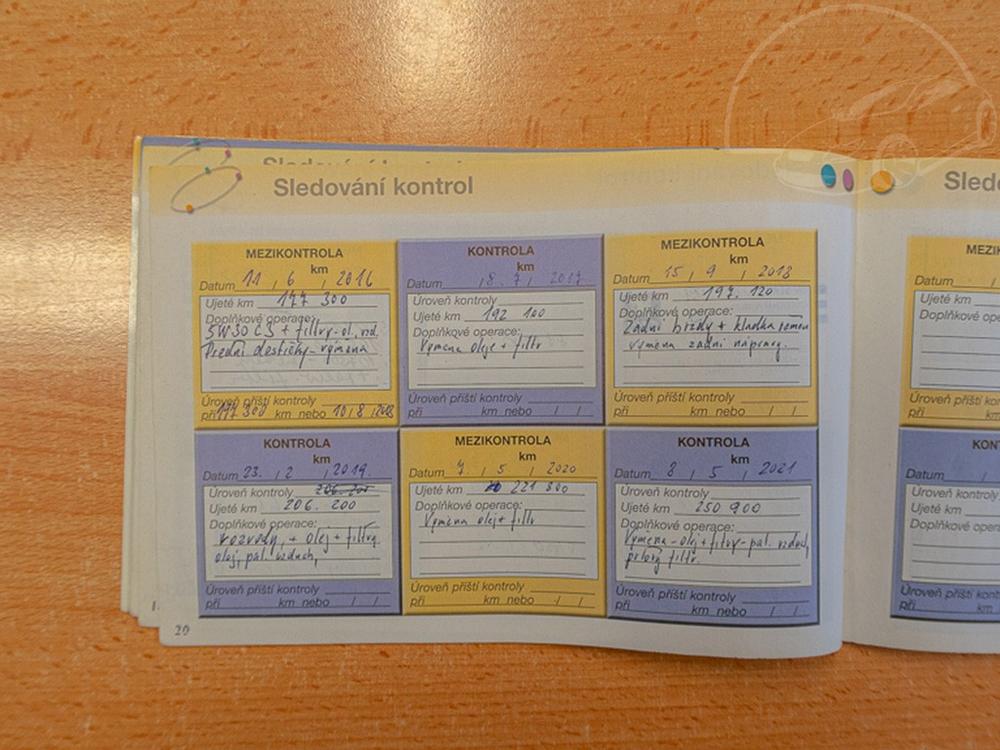 Sledování kontrol
MEZIKONTROLA
km
Datum 11 / 6 / 2016
Ujeté km 177 300
Doplňkové operace:
5W30 C3 + filtry-ol, vzd.
Přední destičky-výměna
Úroveň příští kontroly
při 197 300 km nebo 10 / 8 / 2018
KONTROLA
km
Datum 8. / 7 / 2017
Úroveň kontroly
Ujeté km 192 100
Doplňkové operace:
Výměna oleje + filtr
Úroveň příští kontroly
při km nebo / /
MEZIKONTROLA
km
Datum 15 / 9 / 2018
Ujeté km 197. 120
Doplňkové operace:
Zadní brzdy + kladka řemen
výměna zadní nápravy.
Úroveň příští kontroly
při km nebo / /
KONTROLA
km
Datum 23. / 2 / 2019.
Úroveň kontroly
Ujeté km 206. 200
Doplňkové operace:
Rozvody, + olej + filtry
olej, pal. vzduch,
Úroveň příští kontroly
při km nebo / /
MEZIKONTROLA
km
Datum 7 / 5 / 2020
Ujeté km 221 800
Doplňkové operace:
Výměna olej + filtr
Úroveň příští kontroly
při km nebo / /
KONTROLA
km
Datum 8 / 5 / 2021
Úroveň kontroly
Ujeté km 250 900
Doplňkové operace:
Výměna - olej + filtry - pal. vzduch,
pylový filtr.
Úroveň příští kontroly
při km nebo / /
20
Sled
MEZI
Datum
Ujeté km
Doplňkové o
Úroveň příští ko
při
KON
Datum
Úroveň kont
Ujeté km
Doplňkové ope
Úroveň příští kont
při